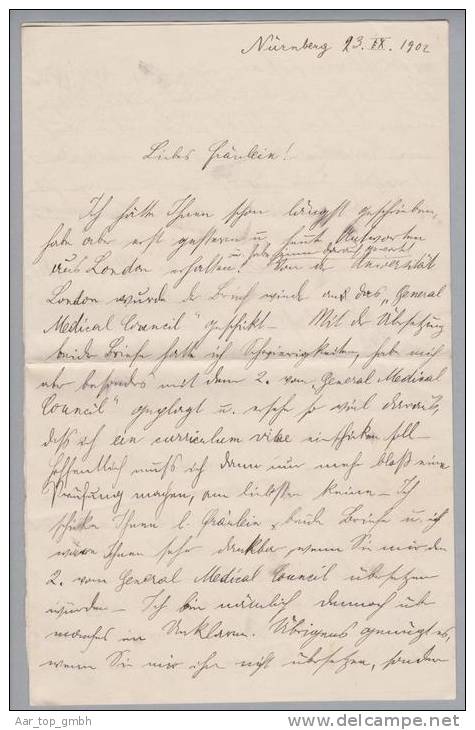 Nürnberg 23. IX. 1902
Liebes Fräulein!
Ich hätte Ihnen schon längst geschrieben,
habe aber erst gestern u. heute Antworten
u. habe immer darauf gewartet
aus London erhalten. Von der Universität
London wurde der Brief wieder an das „General
Medical Council" geschikt – Mit der Übersetzung
beider Briefe hatte ich Schwierigkeiten, hab mich
aber besonders mit dem 2. von „General Medical
Council" geplagt u. ersehe so viel daraus,
dass ich ein curriculum vitae einschicken soll –
hoffentlich muss ich dann nur mehr bloß eine
Prüfung machen, am liebsten keine – Ich
schicke Ihnen l. Fräulein beide Briefe u. ich
wäre Ihnen sehr dankbar, wenn Sie mir den
2. vom General Medical Council übersetzen
würden – Ich bin nämlich dennoch üb
manches im Unklaren. Übrigens genügt es,
wenn Sie mir ihn nicht übersetzen, sondern
Aar_top_gmbh
http://www.delcampe.net